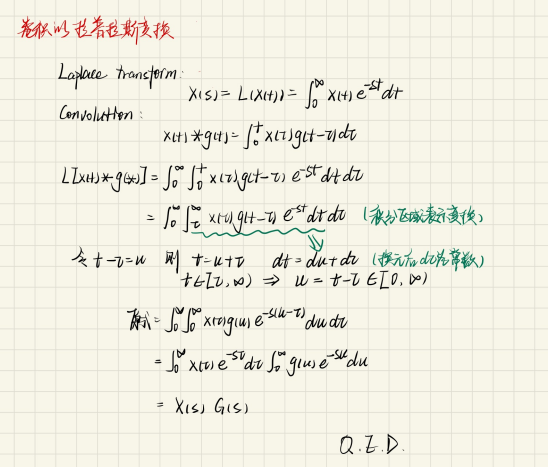 卷积的拉普拉斯变换
Laplace transform:
X(s) = L(x(t)) = ∫₀^∞ x(t) e^{-st} dt
Convolution:
x(t) * g(t) = ∫₀^t x(τ) g(t-τ) dτ
L[x(t) * g(t)] = ∫₀^∞ ∫₀^t x(τ) g(t-τ) e^{-st} dt dτ
= ∫₀^∞ ∫_τ^∞ x(τ) g(t-τ) e^{-st} dt dτ (积分区域表示变换)
令 t-τ=u 则 t=u+τ dt=du+dτ (换元后dτ为常数)
t∈[τ, ∞) ⇒ u = t-τ ∈[0, ∞)
原式 = ∫₀^∞ ∫₀^∞ x(τ) g(u) e^{-s(u-τ)} du dτ
= ∫₀^∞ x(τ) e^{-sτ} dτ ∫₀^∞ g(u) e^{-su} du
= X(s) G(s)
Q.E.D.